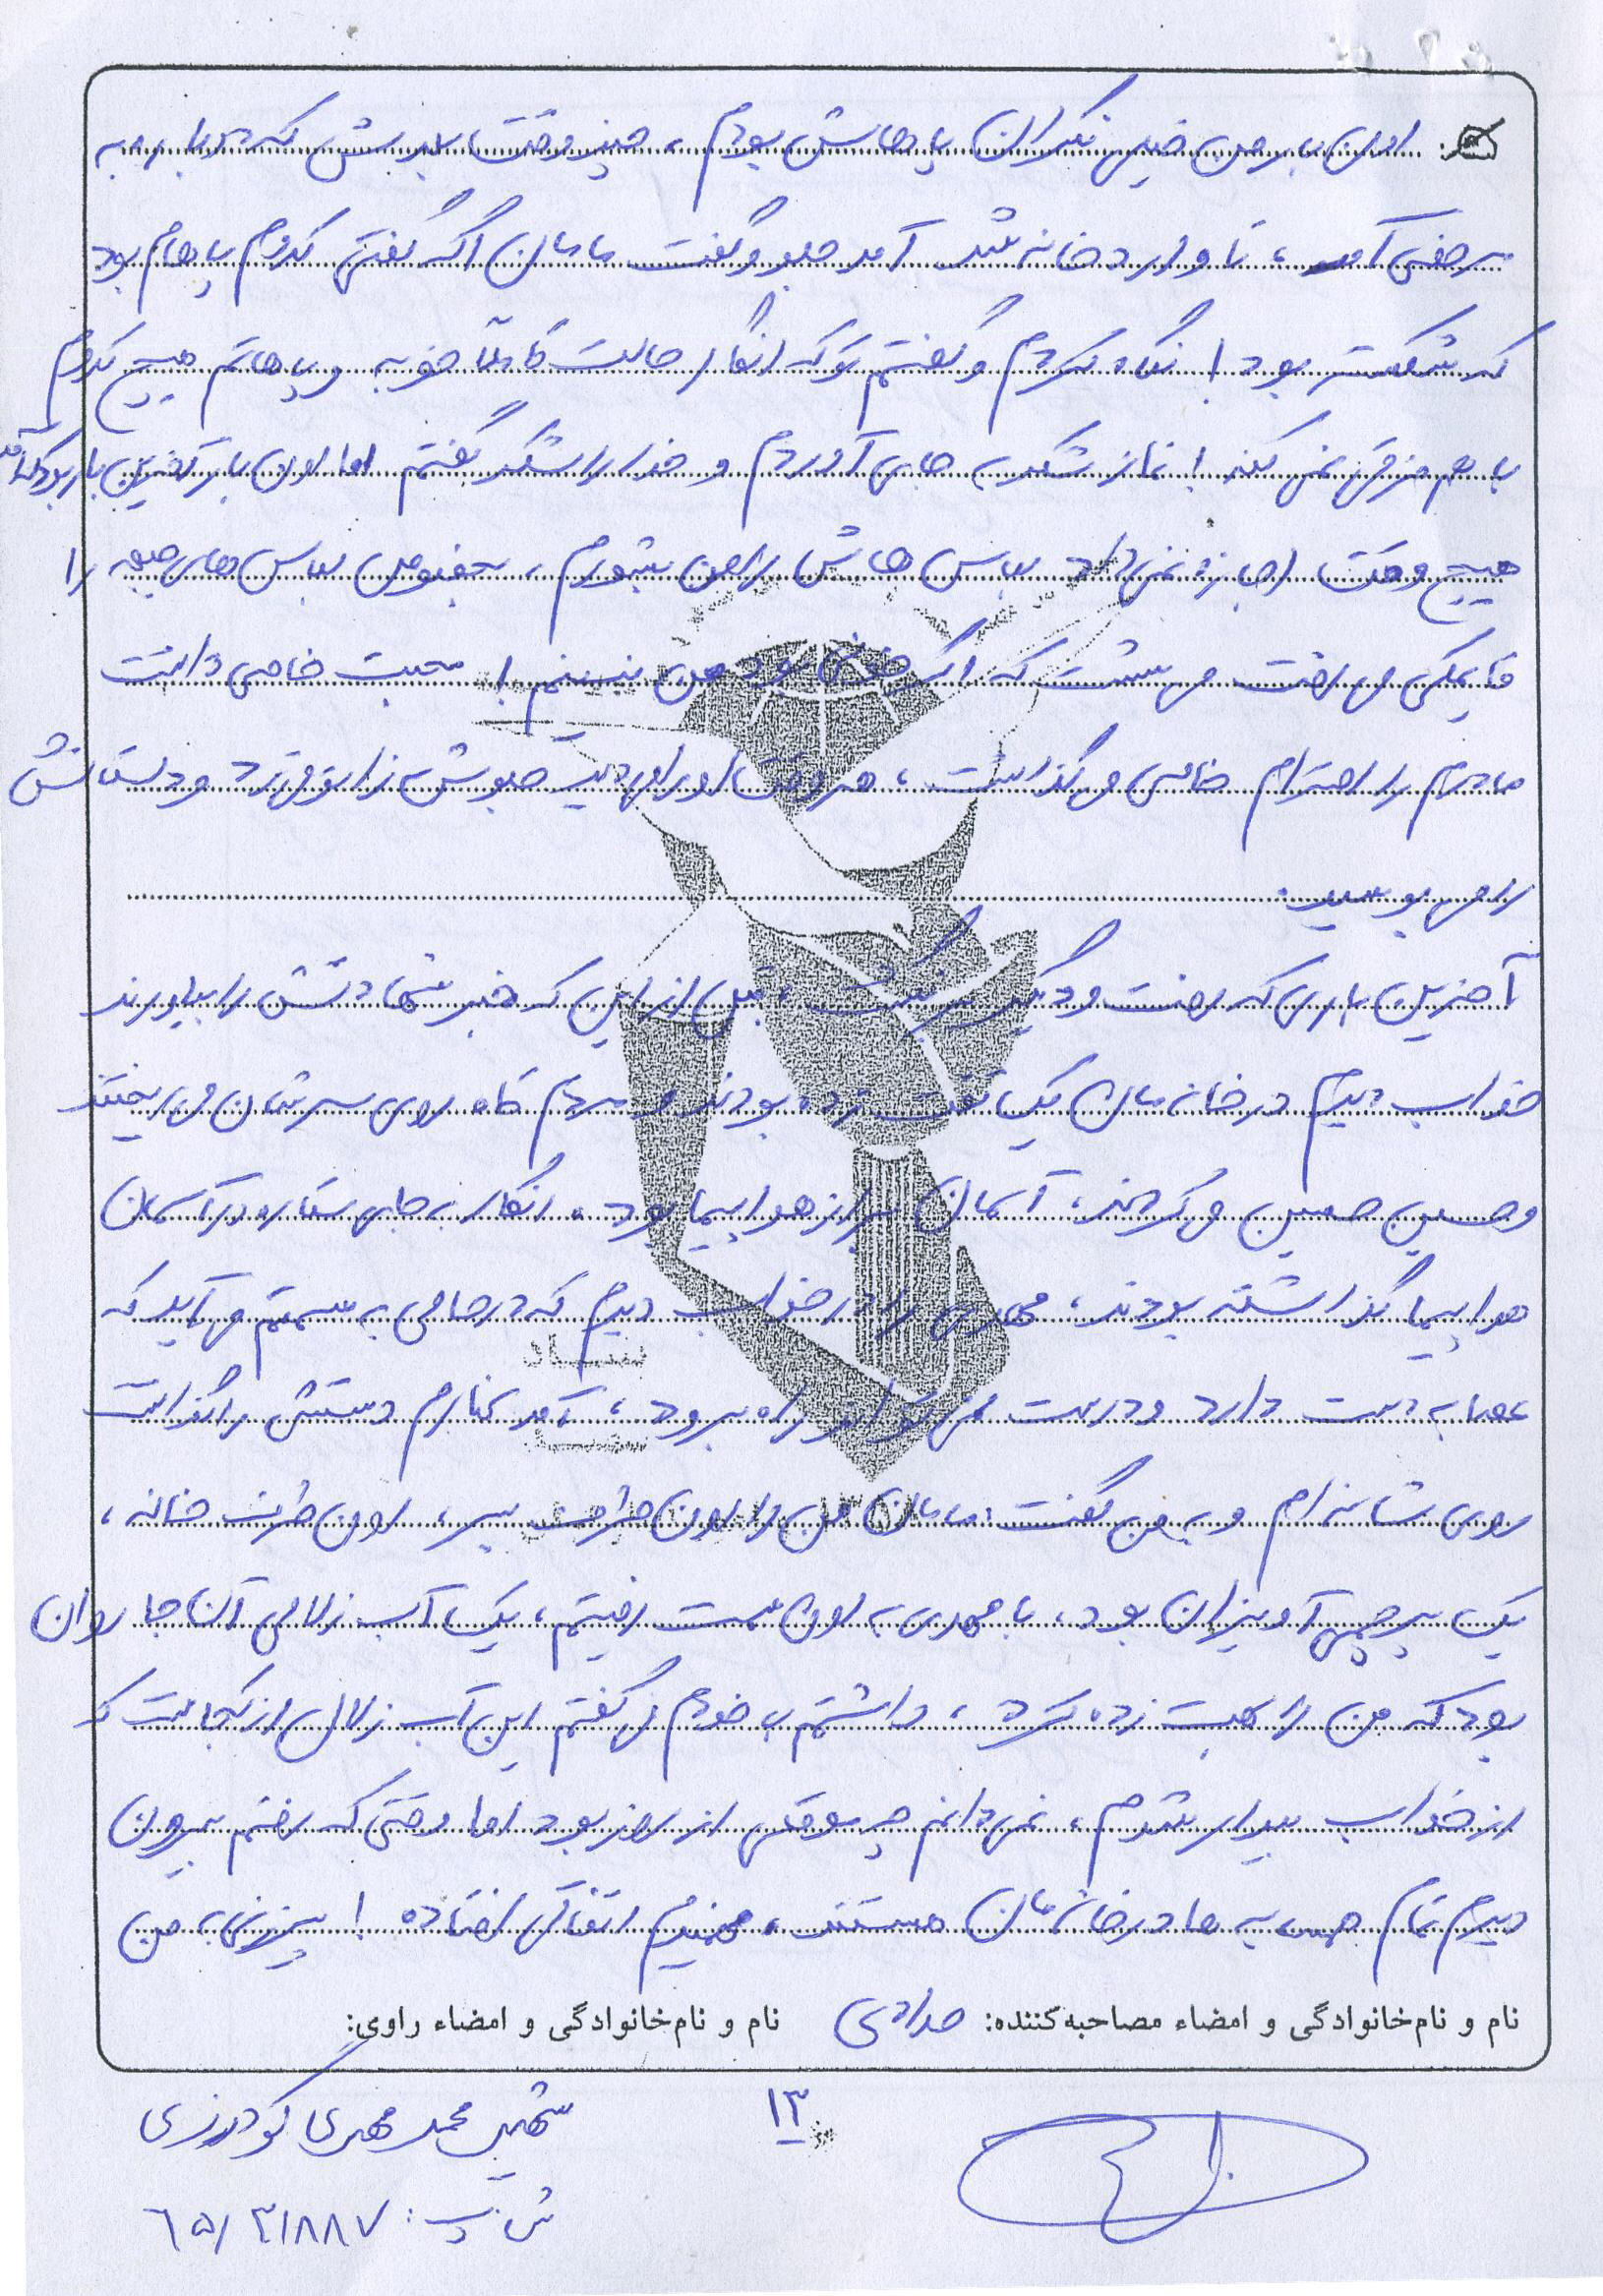 این بار من خیلی نگران پاهاش بودم، چند وقت بعدش که دوباره به
مرخصی آمد، تا وارد خانه شد آمد جلو و گفت مامان اگه گفتی کدوم پاهام بود
که شکسته بود! نگاه کردم و گفتم تو که انگار حالت کاملاً خوبه و پاهاتم هیچ کدوم
با هم فرقی نمی‌کند! نماز شکر به جای آوردم و خدا را شکر گفتم اما اون بار آخرین بار بود که آمد
هیچ وقت اجازه نمی‌داد لباس هاش را من بشورم، بخصوص لباس های جبهه را
قایمکی می رفت می شست که اگر خونی بود من نبینم! محبت خاصی داشت
مادرم را احترام خاصی می گذاشت، هر وقت او را می دید جلوش زانو می زد و دستانش
را می بوسید.
آخرین باری که رفت و دیگر برنگشت، قبل از این که خبر شهادتش را بیاورند
خواب دیدم در خانه مان یک تخت زده بودند و مردم کاه روی سرشان می ریختند
و حسین حسین می کردند، آسمان پر از هواپیما بود. انگار به جای ستاره در آسمان
هواپیما گذاشته بودند، مهدی را در خواب دیدم که در حالی به سمتم می آید که
عصا به دست دارد و درست نمی تواند راه برود، آمد کنارم دستش را گذاشت
روی شانه ام و به من گفت: مامان من را اون طرف ببر، اون طرف خانه،
یک پرچمی آویزان بود، با مهدی به اون سمت رفتیم، یک آب زلالی آنجا روان
بود که من را بهت زده کرد، داشتم با خودم می گفتم این آب زلال از کجاست که
از خواب بیدار شدم، نمی دانم چه موقعی از روز بود اما وقتی که رفتم بیرون
دیدم تمام همسایه ها در خانه مان هستند، فهمیدم اتفاقی افتاده! پیرزنی به من
نام و نام‌خانوادگی و امضاء مصاحبه‌کننده: حدادی نام و نام‌خانوادگی و امضاء راوی:
۱۳
شهید محمد مهدی گودرزی
ش پ: ۶۵/۳۱۸۸۷